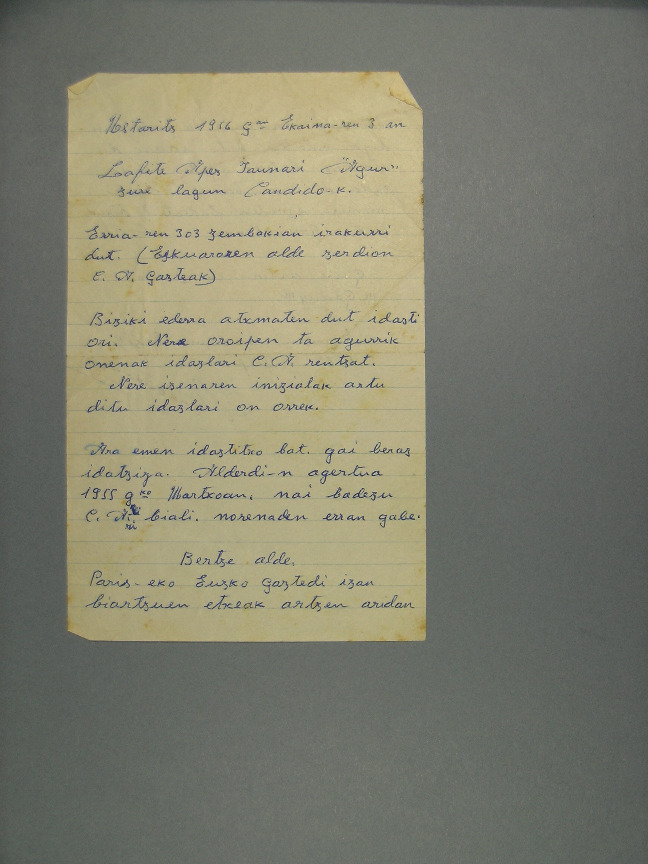 Ustarits 1956 gñ Ekaina-ren 3 an
Lafite Apez Jaunari "Agur"
zure lagun Candido-k.
Erria-ren 303 zembakian irakurri
dut. (Eskuararen alde zerdion
C. A. Gazteak)
Biziki ederra atxmaten dut idazti
ori. Nere oroipen ta agurrik
onenak idazlari C. A. rentzat.
Nere izenaren inizialak artu
ditu idazlari on orrek.
Ara emen idaztitxo bat. gai beraz
idatziya. Alderdi-n agertua
1955 gko Martxoan, nai badezu
C. A. ri biali. norenaden erran gabe.
Bertze alde,
Paris-eko Euzko Gaztedi izan
biartzuen etxeak artzen aridan